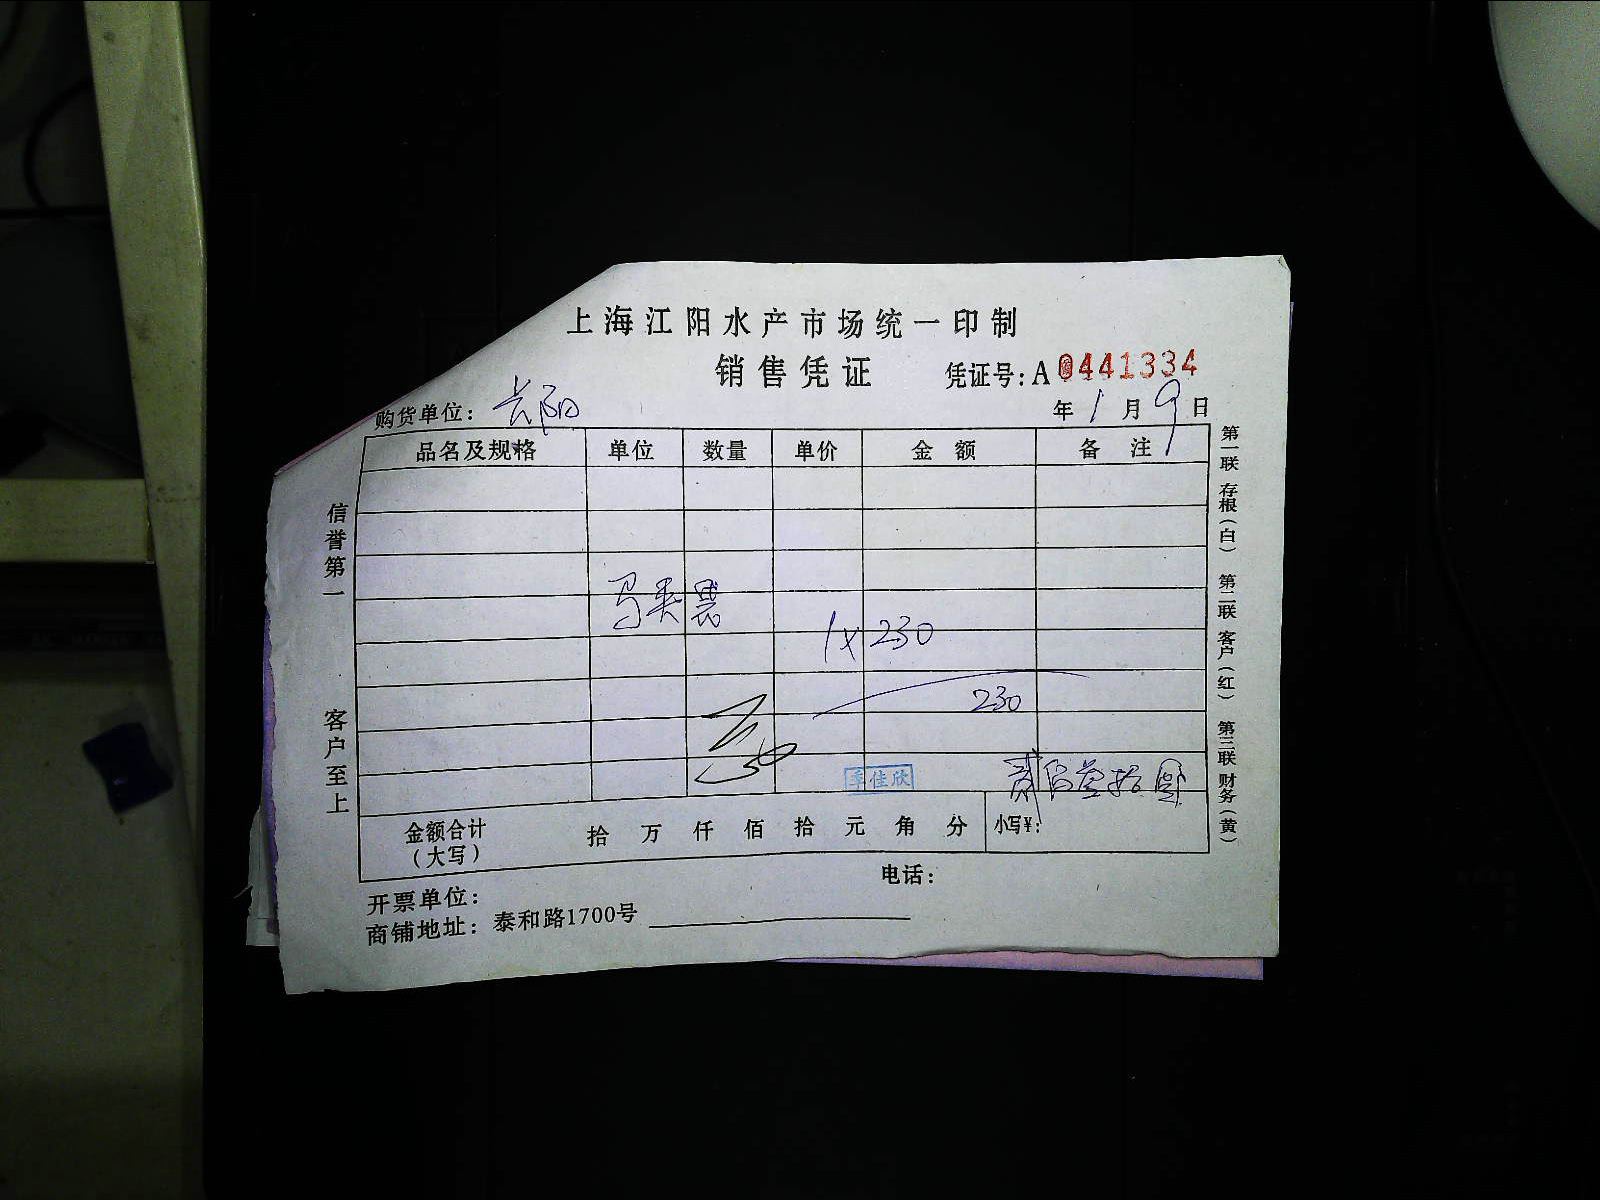 上海江阳水产市场统一印制
销售凭证
凭证号：A 0441334
购货单位：长阳
年 1 月 9 日
品名及规格 单位 数量 单价 金额 备注
1x230
230
季佳欣
贰佰叁拾圆
金额合计（大写） 拾 万 仟 佰 拾 元 角 分 小写¥：
电话：
开票单位：
商铺地址：泰和路1700号
信誉第一 客户至上
第一联 存根（白） 第二联 客户（红） 第三联 财务（黄）